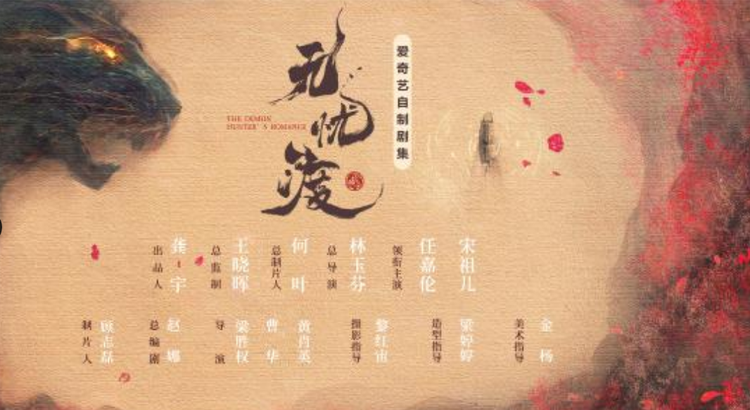 无忧渡
THE DEMON
HUNTER'S ROMANCE
爱奇艺自制剧集
出品人 龚宇
总监制 王晓晖
总制片人 何叶
总导演 林玉芬
领衔主演 任嘉伦 宋祖儿
制片人 顾志磊
总编剧 赵娜
导演 梁胜权 曹华 黄肖英
摄影指导 黎红宙
造型指导 梁婷婷
美术指导 金杨